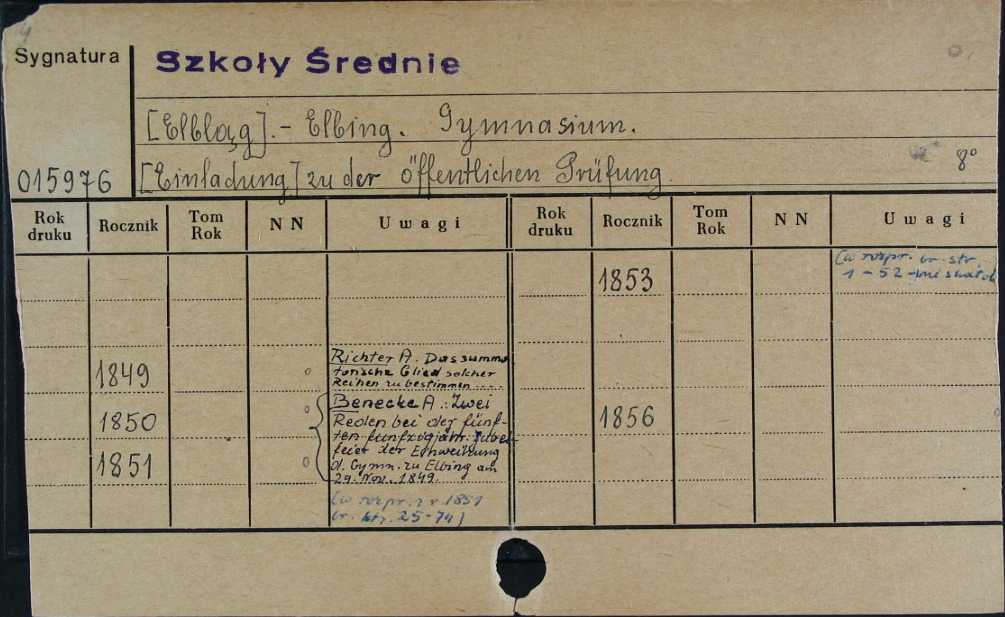 Sygnatura
Szkoły Średnie
[Elbląg].- Elbing. Gymnasium.
015976
[Einladung] zu der öffentlichen Prüfung.
8°
Rok druku
Rocznik
Tom Rok
N N
Uwagi
Rok druku
Rocznik
Tom Rok
N N
Uwagi
1853
(w rozpr. br. str.
1-52
1849
Richter A. Das summa-
torische Glied solcher
Reihen zu bestimmen ....
1850
1851
Benecke A.: Zwei
Reden bei der fünf-
ten funfzigjähr. Jubel-
feier der Einweihung
d. Gymn. zu Elbing am
29. Nov. 1849.
(w rozpr. z r 1851
br. str. 25-74)
1856